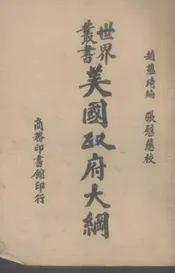 趙蘊琦編 張慰慈校
世界叢書
美國政府大綱
商務印書館印行